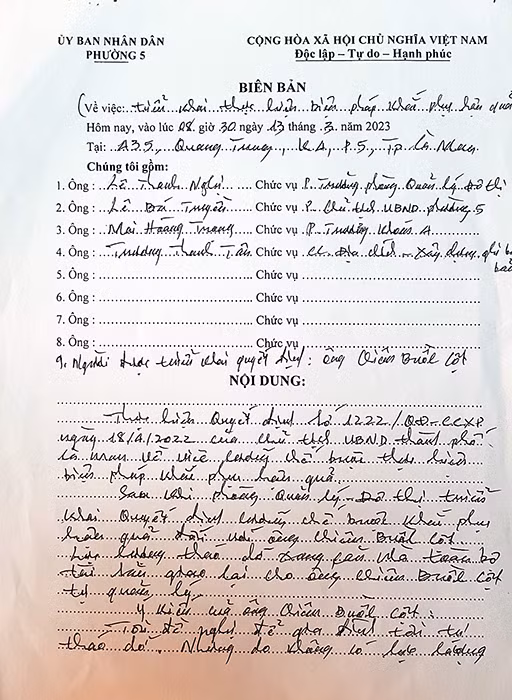 ỦY BAN NHÂN DÂN
PHƯỜNG 5
CỘNG HÒA XÃ HỘI CHỦ NGHĨA VIỆT NAM
Độc lập – Tự do – Hạnh phúc
BIÊN BẢN
(Về việc: triển khai thực hiện biện pháp khắc phục hậu quả
Hôm nay, vào lúc 08 giờ 30 ngày 13 tháng 3 năm 2023
Tại: A35, Quang Trung, K4, P.5, Tp Cà Mau
Chúng tôi gồm:
1. Ông : Lê Thanh Nghị Chức vụ P. Trưởng phòng Quản lý Đô thị
2. Ông : Lê Bá Chức vụ P. Chủ tịch UBND phường 5
3. Ông : Mai Hoàng Chức vụ P. Trưởng khóm 4
4. Ông : Trương Thanh Tân Chức vụ CC. Địa chính - Xây dựng
5. Ông : Chức vụ
6. Ông : Chức vụ
7. Ông : Chức vụ
8. Ông : Chức vụ
9. Người được triển khai quyết định: ông Buôl Cột
NỘI DUNG:
Thực hiện Quyết định số 1222/QĐ-CCXP
ngày 18/4/2022 của chủ tịch UBND thành phố
Cà Mau về việc cưỡng chế buộc thực hiện
biện pháp khắc phục hậu quả.
Sau khi phòng Quản lý Đô thị triển
khai Quyết định cưỡng chế buộc khắc phục
hậu quả đối với ông Buôl Cột
Lực lượng tháo dỡ căn nhà toàn bộ
tài sản giao lại cho ông Buôl Cột
tự quản lý.
Ý kiến của ông Buôl Cột:
Tôi đề nghị để gia đình tôi tự
tháo dỡ. Nhưng do không có lực lượng